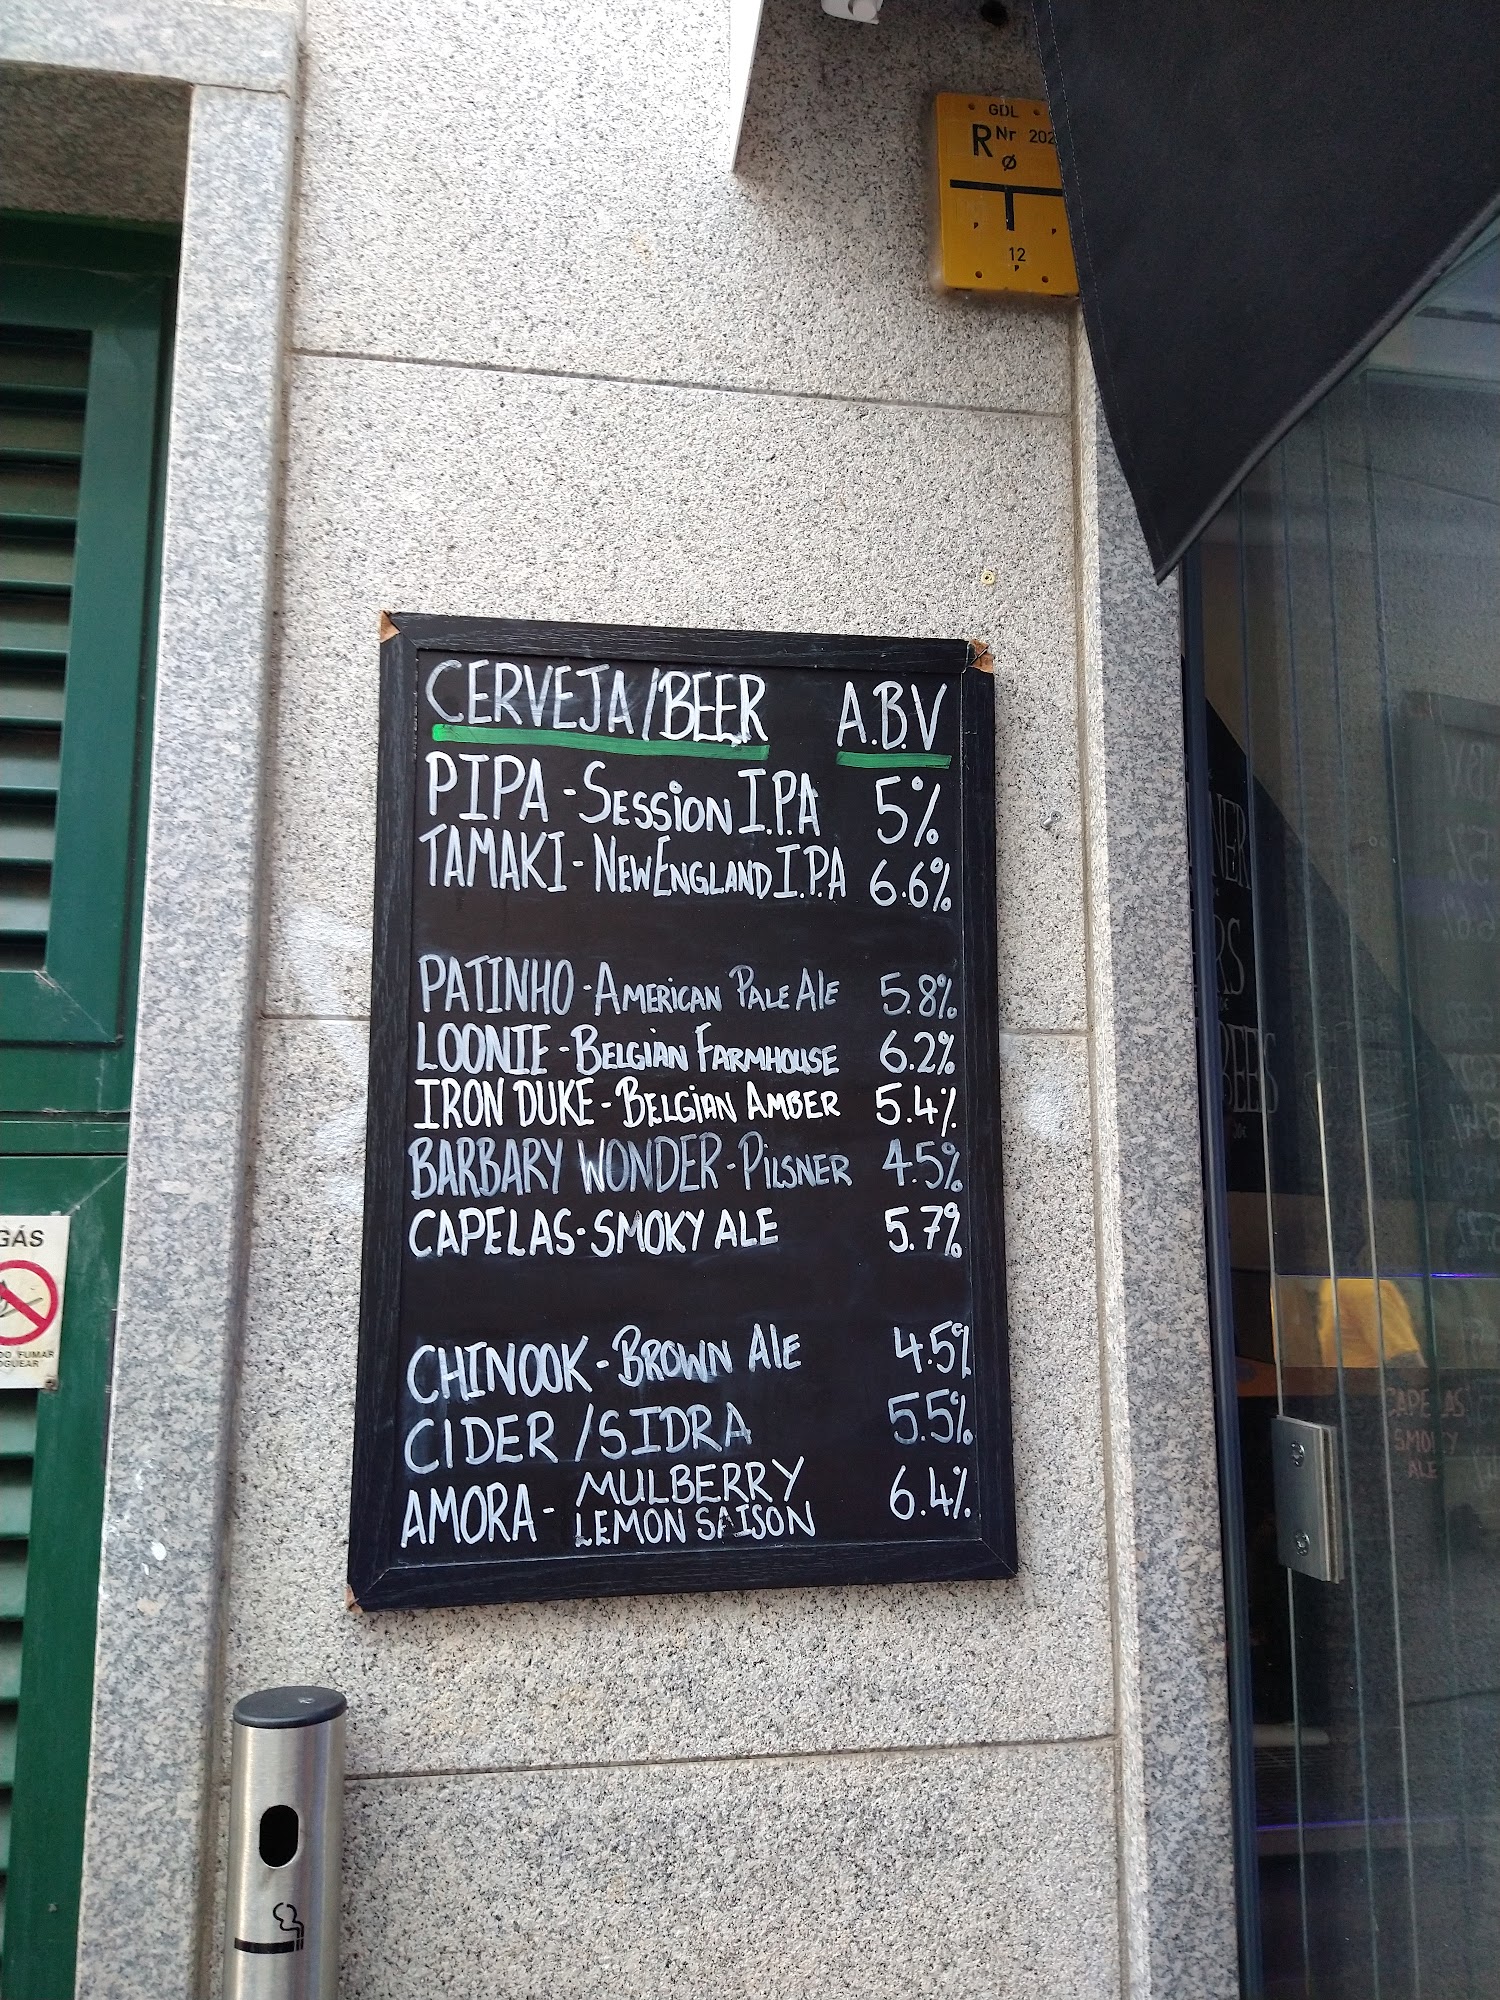 GDL
R Nr 202
Ø
P P
12
P
CERVEJA/BEER A.B.V
PIPA - SESSION I.P.A 5%
TAMAKI - NEW ENGLAND I.P.A 6.6%
PATINHO - AMERICAN PALE ALE 5.8%
LOONIE - BELGIAN FARMHOUSE 6.2%
IRON DUKE - BELGIAN AMBER 5.4%
BARBARY WONDER - PILSNER 4.5%
CAPELAS - SMOKY ALE 5.7%
CHINOOK - BROWN ALE 4.5%
CIDER / SIDRA 5.5%
AMORA - MULBERRY 6.4%
LEMON SAISON
GÁS
DO FUMAR
OGUEAR
CAPELAS
SMOKY
ALE